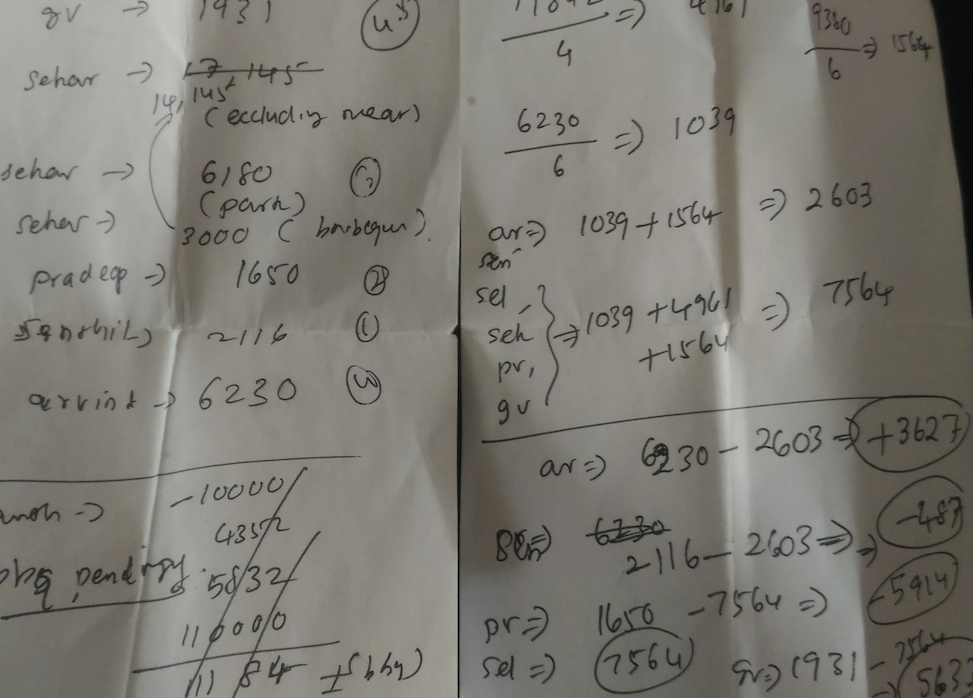 gv → 1931 (45)
sehar → 17 145
14,145
(excluding mear)
sehar → 6180
(park)
sehar → 3000 (barbeque).
pradeep → 1650 (2)
Senthil → 2116 (1)
arvind → 6230
-10000
4352
bbq pending. 5832
110000
11 84
4
⇒ 4961
9380
6
⇒ 1564
6230
6
⇒ 1039
ar ⇒ 1039 + 1564 ⇒ 2603
sen
sel,
seh ⇒ 1039 + 4961 ⇒ 7564
pr, +1564
gv
ar ⇒ 6230 - 2603 ⇒ +3627
sen ⇒ 6230
2116 - 2603 ⇒ -487
pr ⇒ 1650 - 7564 ⇒ -5914
sel ⇒ 7564 gv ⇒ 1931 - 7564
⇒ 5633